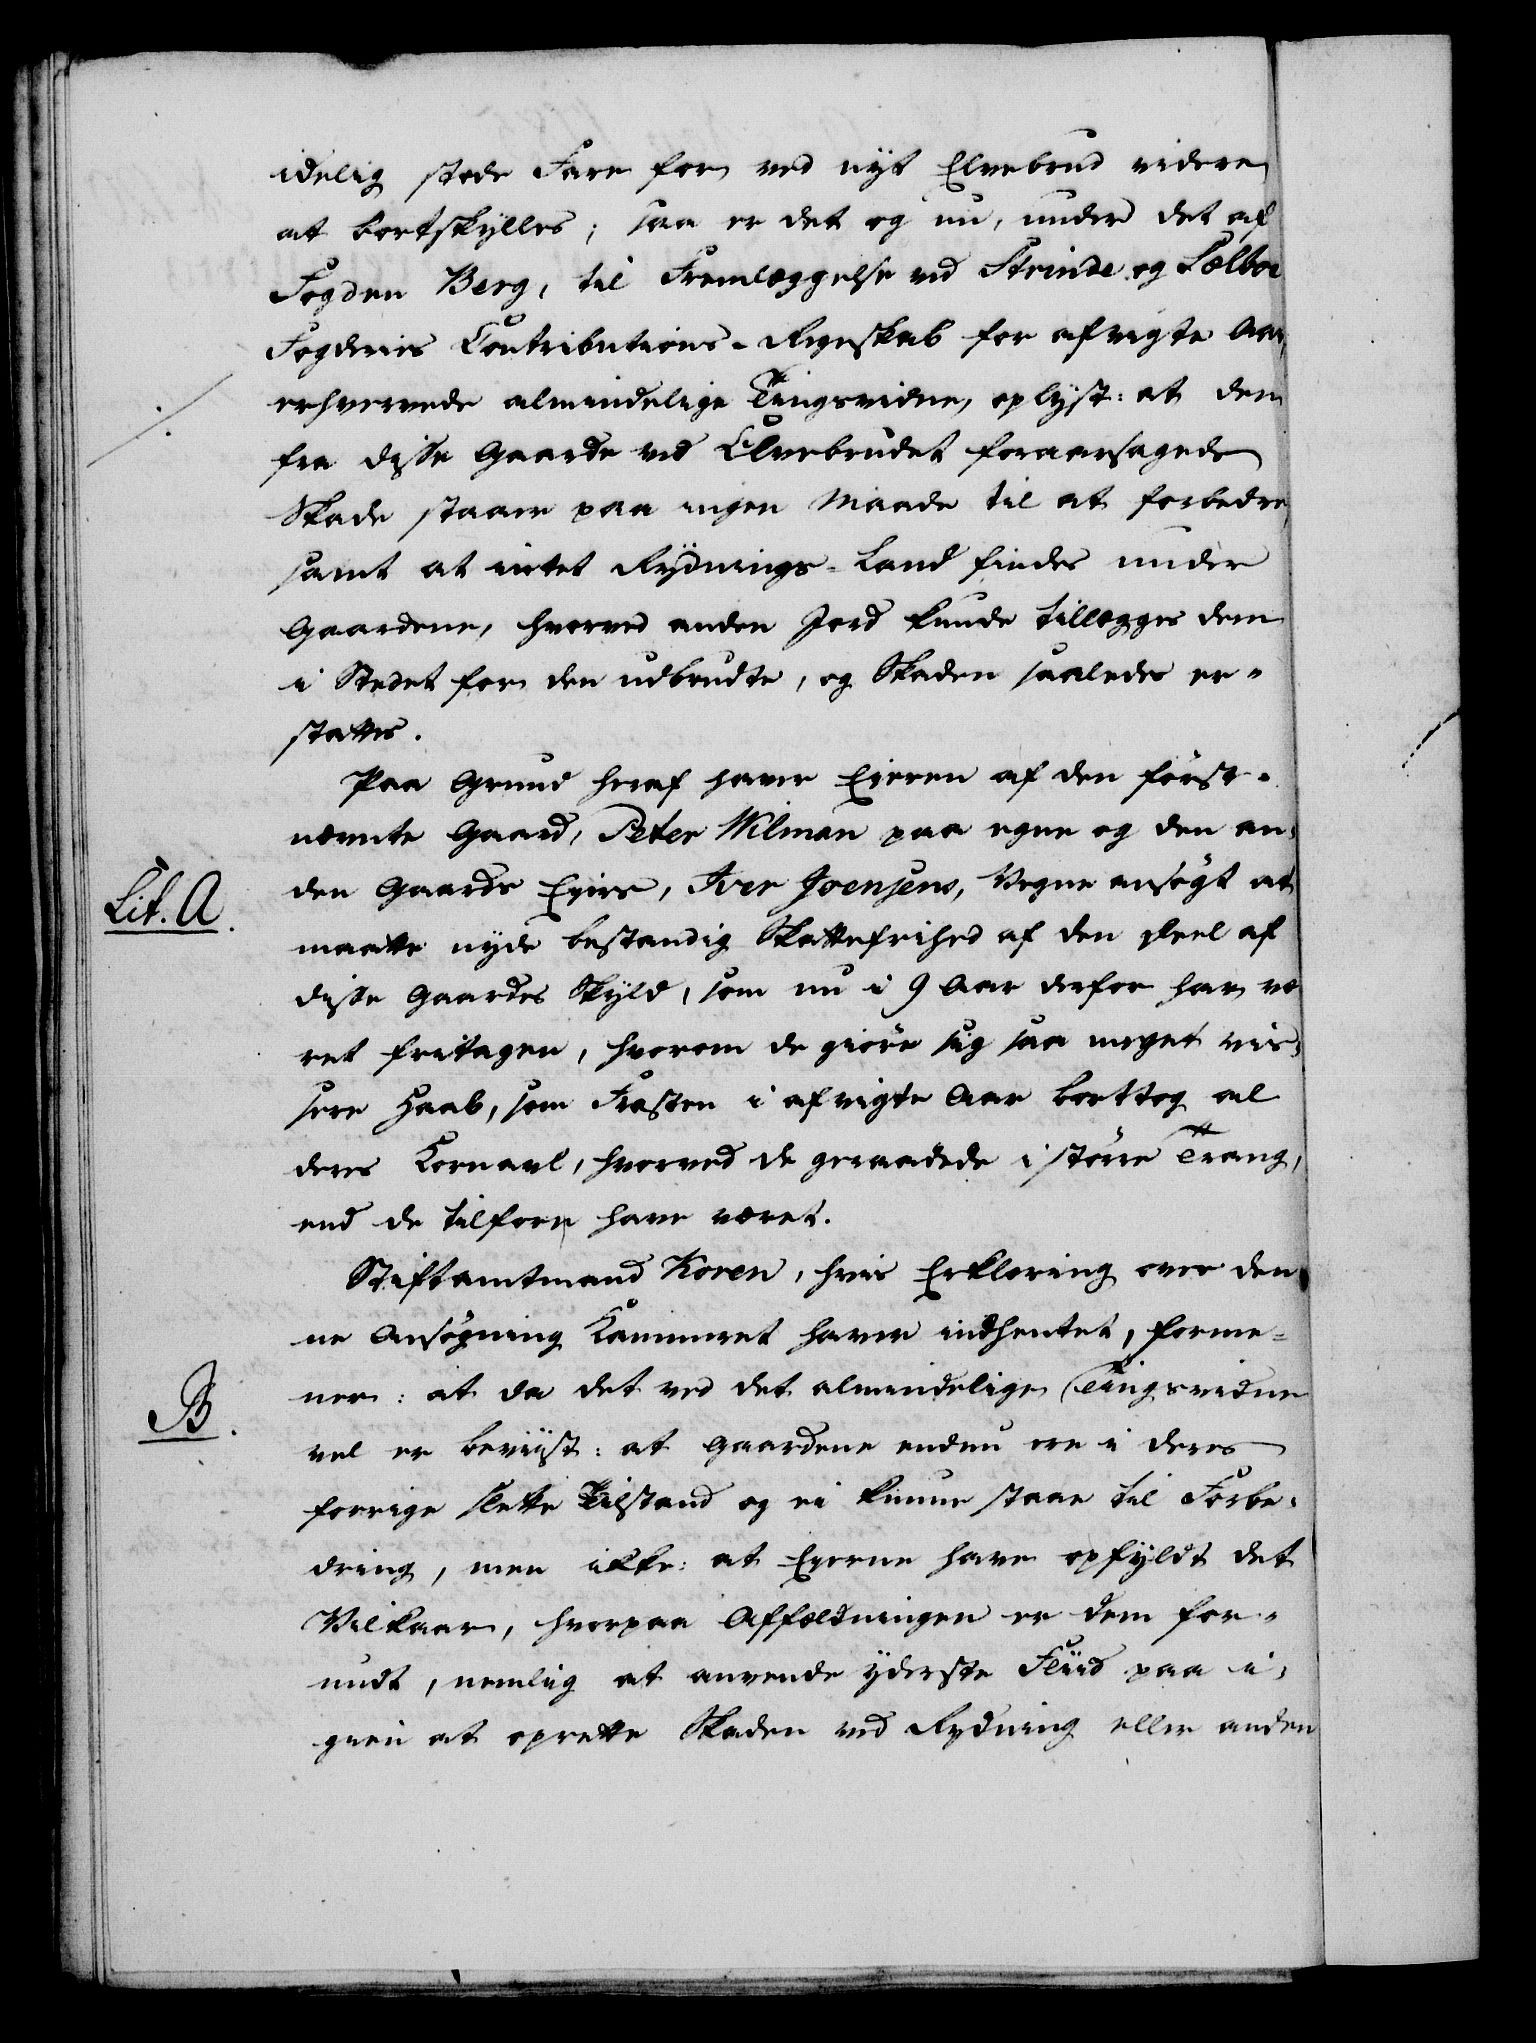 idelig stode Fare for ved nyt Elvebrud videre
at bortskylles; saa er det og nu, under det af
Fogden Berg, til Fremlæggelse ved Strinde og Sælboe
Fogderies Contributions-Regnskab for afvigte Aar,
erhvervede almindelige Tingsvidne, oplyst: at den
fra disse Gaarde ved Elvebrudet foraarsagede
Skade staaer paa ingen Maade til at forbedre,
samt at intet Rydnings-Land findes under
Gaardene, hvorved anden Jord kunde tillægges dem
i Stedet for den udbrudte, og Skaden saaledes er-
stattes.
Paa Grund heraf haver Eieren af den först-
nævnte Gaard, Peter Wilman paa egne og den an-
Lit. A.
den Gaards Eyers, Iver Joensens, Vegne ansögt at
maatte nyde bestandig Skattefrihed af den Deel af
disse Gaardes Skyld, som nu i 9 Aar derfor har væ
ret fritagen, hvorom de giöre sig saa meget vis-
sere Haab, som Frosten i afvigte Aar borttog al
deres Kornavl, hvorved de geraadede i större Trang,
end de tilforn have været.
Stiftamtmand Koren, hvis Erklæring over den
ne Ansögning Kammeret haver indhentet, forme-
B.
ner: at da det ved det almindelige Tingsvidne
vel er beviist: at Gaardene endnu ere i deres
forrige slette Tilstand og ei kunne staae til Forbe-
dring, men ikke: at Eyerne have opfyldt det
Vilkaar, hvorpaa Affældningen er dem for-
undt, nemlig at anvende yderste Fliid paa i-
gien at oprette Skaden ved Rydning eller anden